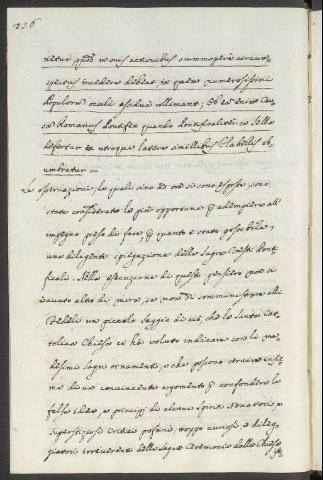 236
netur, quod in suis actionibus summopere circum-
spectus incedere debeat, in quem numerosissimi
Populorum oculi assidue collimant; Et ex enim Cau-
sa Romanus Pontifex quando Pontificaliter in Sella
defertur ex utroque latere similibus flabellis ob-
umbratur =
Le osservazioni, le quali sino ad ora si sono esposte, sono
state considerate le più opportune per adempiere all'
impegno preso di fare, per quanto è stato possibile,
una diligente spiegazione delle Sagre Vesti Ponti-
ficali. Nella esecuzione di questo pensiero non si
è avuto altro di mira, se non di somministrare alli
Fedeli un piccolo saggio di ciò, che la Santa Cat-
tolica Chiesa ci ha voluto indicare con li me-
desimi Sagri ornamenti, e che possono servire insie-
me di un convincente argomento per confondere le
false idee, e principj di alcuni Spiriti Novatori, e
superstiziosi Critici profani, troppo curiosi, e dileg-
giatori irreverenti delle Sagre Ceremonie della Chiesa